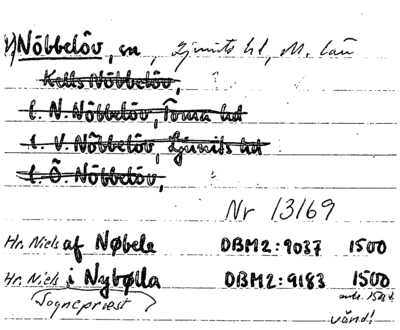 V) Nöbbelöv, sn, Ljunits hd, M. län
Kells Nöbbelöv,
l. N. Nöbbelöv, Torna hd
l. V. Nöbbelöv, Ljunits hd
l. Ö. Nöbbelöv,
Nr 13/69
Hr. Niels af Nøbele DBM2:9037 1500
Hr. Niels i Nybølla DBM2:9183 1500
Sognepriest
vänd!